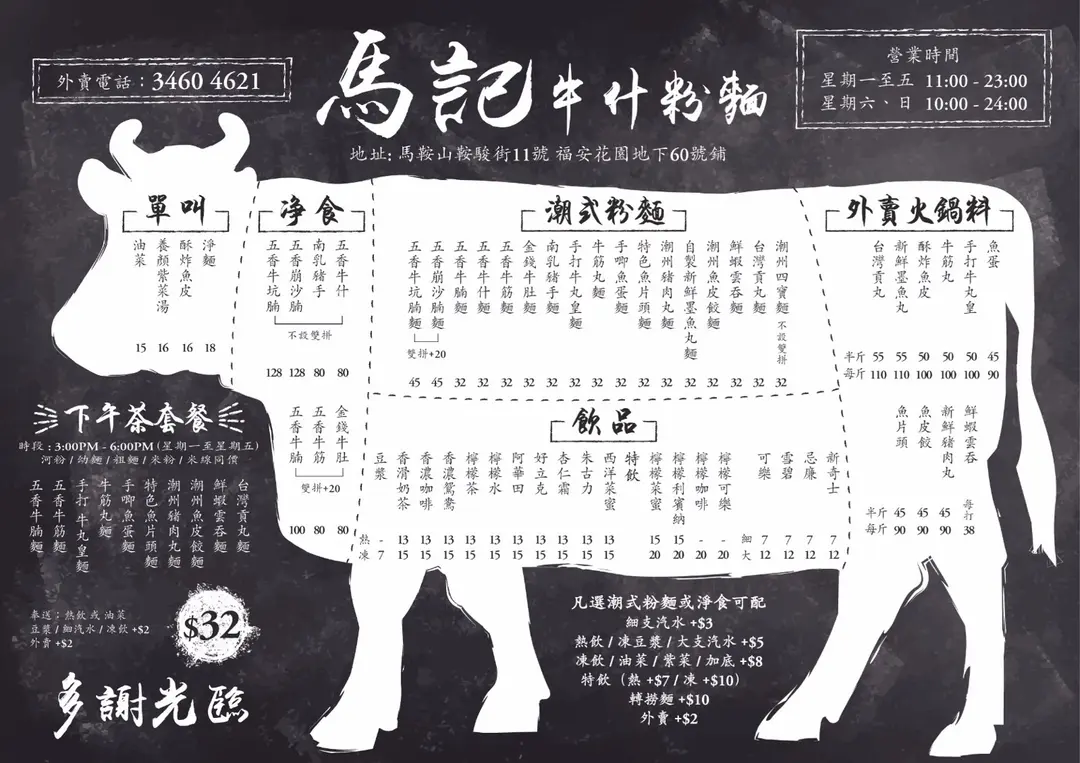 外賣電話：3460 4621
馬記牛什粉麵
地址: 馬鞍山鞍駿街11號 福安花園地下60號鋪
營業時間
星期一至五 11:00 - 23:00
星期六、日 10:00 - 24:00
單叫
淨麵
酥炸魚皮
養顏紫菜湯
油菜
15 16 16 18
净食
五香牛什
南乳豬手
五香崩沙腩
五香牛坑腩
不設雙拼
128 128 80 80
金錢牛肚
五香牛筋
五香牛腩
雙拼+20
100 80 80
潮式粉麵
潮州四寶麵
不設雙拼
台灣貢丸麵
鮮蝦雲吞麵
潮州魚皮餃麵
自製新鮮墨魚丸麵
潮州豬肉丸麵
特色魚片頭麵
手唧魚蛋麵
牛筋丸麵
手打牛丸皇麵
南乳豬手麵
金錢牛肚麵
五香牛筋麵
五香牛什麵
五香牛腩麵
五香崩沙腩麵
五香牛坑腩麵
雙拼+20
45 45 32 32 32 32 32 32 32 32 32 32 32 32 32 32 32
外賣火鍋料
魚蛋
手打牛丸皇
牛筋丸
酥炸魚皮
新鮮墨魚丸
台灣貢丸
半斤 55 55 50 50 50 45
每斤 110 110 100 100 100 90
鮮蝦雲吞
新鮮豬肉丸
魚皮餃
魚片頭
半斤 45 45 45
每斤 90 90 90
每打
38
飲品
新奇士
忌廉
雪碧
可樂
檸檬可樂
檸檬咖啡
檸檬利賓納
檸檬菜蜜
特飲
西洋菜蜜
朱古力
杏仁霜
好立克
阿華田
檸檬水
檸檬茶
香濃鴛鴦
香濃咖啡
香滑奶茶
豆漿
熱 - 13 13 13 13 13 13 13 13 13 13 15 15 - - 細 7 7 7 7
凍 7 15 15 15 15 15 15 15 15 15 15 20 20 20 20 大 12 12 12 12
下午茶套餐
時段 : 3:00PM - 6:00PM (星期一至星期五)
河粉 / 幼麵 / 粗麵 / 米粉 / 米線同價
台灣貢丸麵
鮮蝦雲吞麵
潮州魚皮餃麵
潮州豬肉丸麵
特色魚片頭麵
手唧魚蛋麵
牛筋丸麵
手打 牛丸皇麵
五香牛筋麵
五香牛腩麵
奉送：熱飲 或 油菜
豆漿 / 細汽水 / 凍飲 +$2
外賣 +$2
$32
多謝光臨
凡選潮式粉麵或淨食可配
細支汽水 +$3
熱飲 / 凍豆漿 / 大支汽水 +$5
凍飲 / 油菜 / 紫菜 / 加底 +$8
特飲（熱 +$7 / 凍 +$10）
轉撈麵 +$10
外賣 +$2